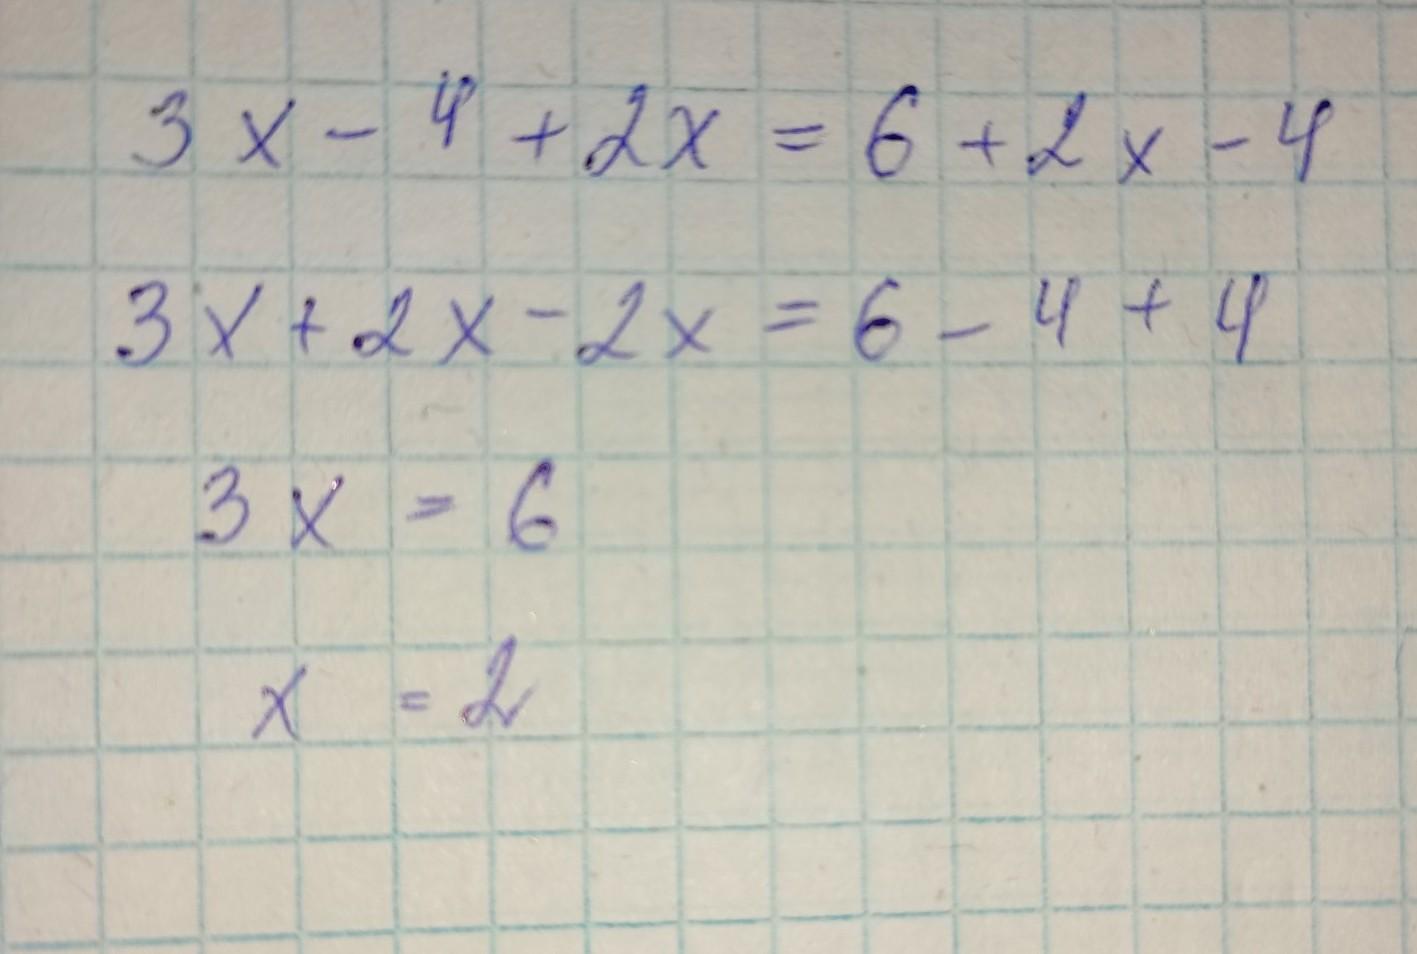 3x - 4 + 2x = 6 + 2x - 4
3x + 2x - 2x = 6 - 4 + 4
3x = 6
x = 2